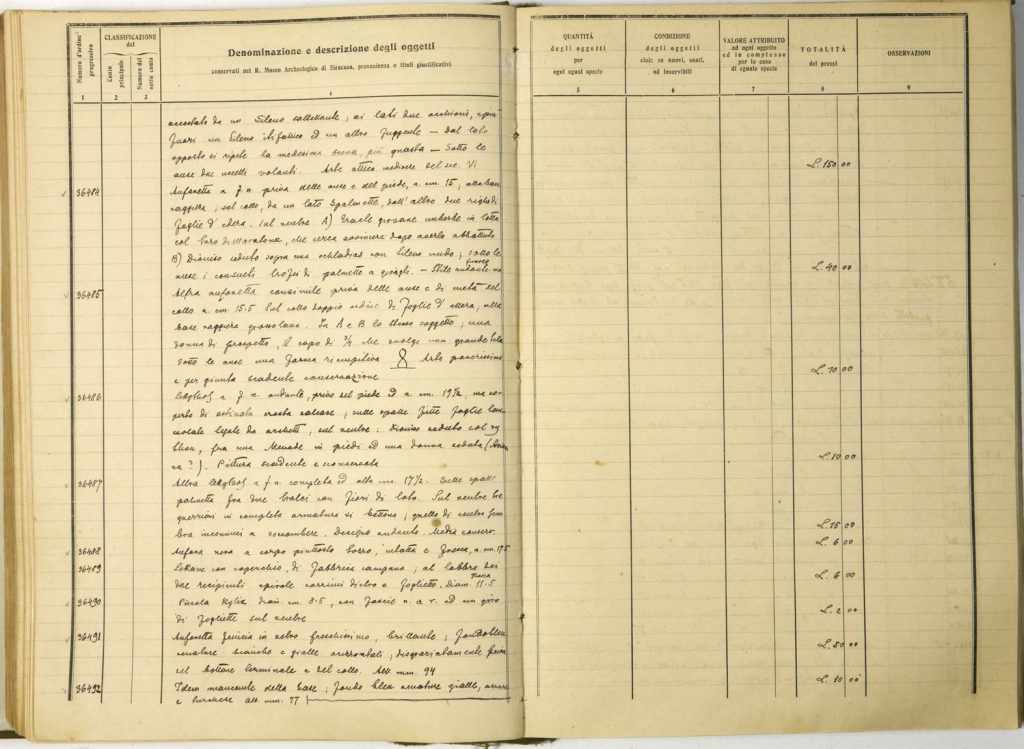 Numero d'ordine progressivo
CLASSIFICAZIONE del
Conto principale
Numero del sotto conto
Denominazione e descrizione degli oggetti
conservati nel R. Museo Archeologico di Siracusa, provenienza e titoli giustificativi
QUANTITÀ degli oggetti per ogni egual specie
CONDIZIONE degli oggetti cioè: se nuovi, usati, od inservibili
VALORE ATTRIBUITO ad ogni oggetto ed in complesso per le cose di eguale specie
TOTALITÀ dei prezzi
OSSERVAZIONI
1 2 3 4 5 6 7 8 9
da un Sileno saltellante; ai lati due occhioni, e più
fuori un Sileno itifallico ed un altro fuggente — dal lato
opposto si ripete la medesima scena, più guasta — Sotto le
anse due uccelli volanti. Arte attica mediocre del sec. VI
L. 150 00
36484 Anforetta a f. n. priva delle anse e del piede, a. cm. 15;
raggiera; sul collo, da un lato 3 palmette, dall'altro due righe di
foglie d'edera. Sul ventre A) Eracle giovane imberbe in lotta
col toro di Maratona, che cerca avvincere dopo averlo abbattuto
B) Dioniso seduto sopra una ochladias con Sileno nudo; sotto le
anse i consueti trofei di palmette a girigli. — Stile andante ma
fresco
L. 40 00
36485 Altra anforetta consimile priva delle anse e di metà del
collo a. cm. 15.5 Sul collo doppio ordine di foglie d'edera; alla
base raggiera grossolana. In A e B lo stesso soggetto; una
donna di prospetto, il capo di 3/4 che svolge una grande
Sotto le anse una forma riempitiva Arte poverissima
e per giunta scadente conservazione
L. 10 00
36486 Lekythos a f. n. andante, privo del piede ed a. cm. 19½, ma co-
perto di ostinata crosta calcare; sulle spalle fitte foglie lan-
ceolate legate da archetti; sul ventre: Dioniso seduto col ry-
thon, fra una Menade in piedi ed una donna seduta (Arian-
na?). Pittura scadente e sconservata
L. 10 00
36487 Altra lekythos a f. n. completa ed alta cm. 17½. Sulle spalle
palmetta fra due tralci con fiori di loto. Sul ventre tre
guerrieri in completa armatura si battono; quello di centro sem-
bra soccombere. Disegno andante. Media conserv.
L. 15 00
36488 Anfora nera a corpo piuttosto tozzo, intatta e fresca, a. cm. 17.5
L. 6 00
36489 Lekane con coperchio, di fabbrica campana; al labbro dei
due recipienti spirale corrimi dietro e fogliette. Diam. 11.5
L. 6 00
36490 Piccola kylix diam. cm. 8.5, con fascie n. a v. ed un giro
di fogliette sul ventre
L. 2 00
36491 Anforetta fenicia in vetro freschissimo, brillante; fondo bleu
venature bianche e gialle orizzontali; disgraziatamente priva
del bottone terminale e del collo. Alt. mm. 94
L. 50 00
36492 Idem mancante della base; fondo bleu venature gialle,
e turchese alt. mm. 77
L. 10 00